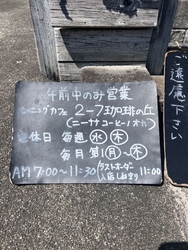 午前中のみ営業
モーニングカフェ 2-7珈琲の丘
(ニーナナコーヒーノオカ)
定休日 毎週㊌㊍
毎月第1㊊~㊍
AM 7:00~11:30 ラストオーダー 11:00
ご遠慮下さい